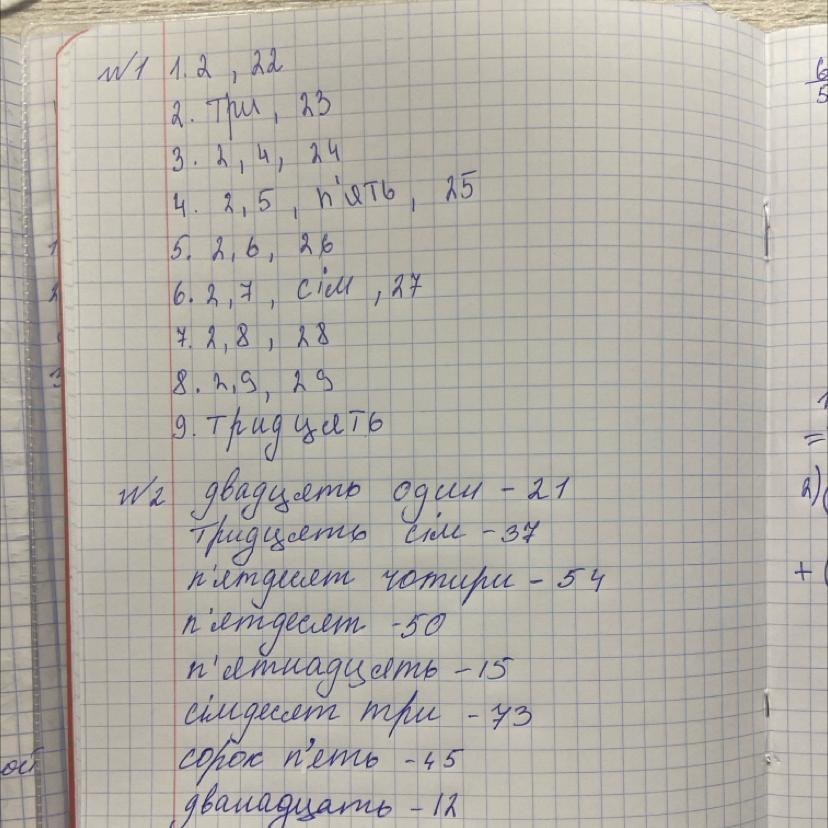 №1 1. 2, 22
2. три, 23
3. 2, 4, 24
4. 2,5, п'ять, 25
5. 2,6, 26
6. 2,7, сім, 27
7. 2,8, 28
8. 2,9, 29
9. тридцять
№2 двадцять один - 21
тридцять сім - 37
п'ятдесят чотири - 54
п'ятдесят - 50
п'ятнадцять - 15
сімдесят три - 73
сорок п'ять - 45
дванадцать - 12